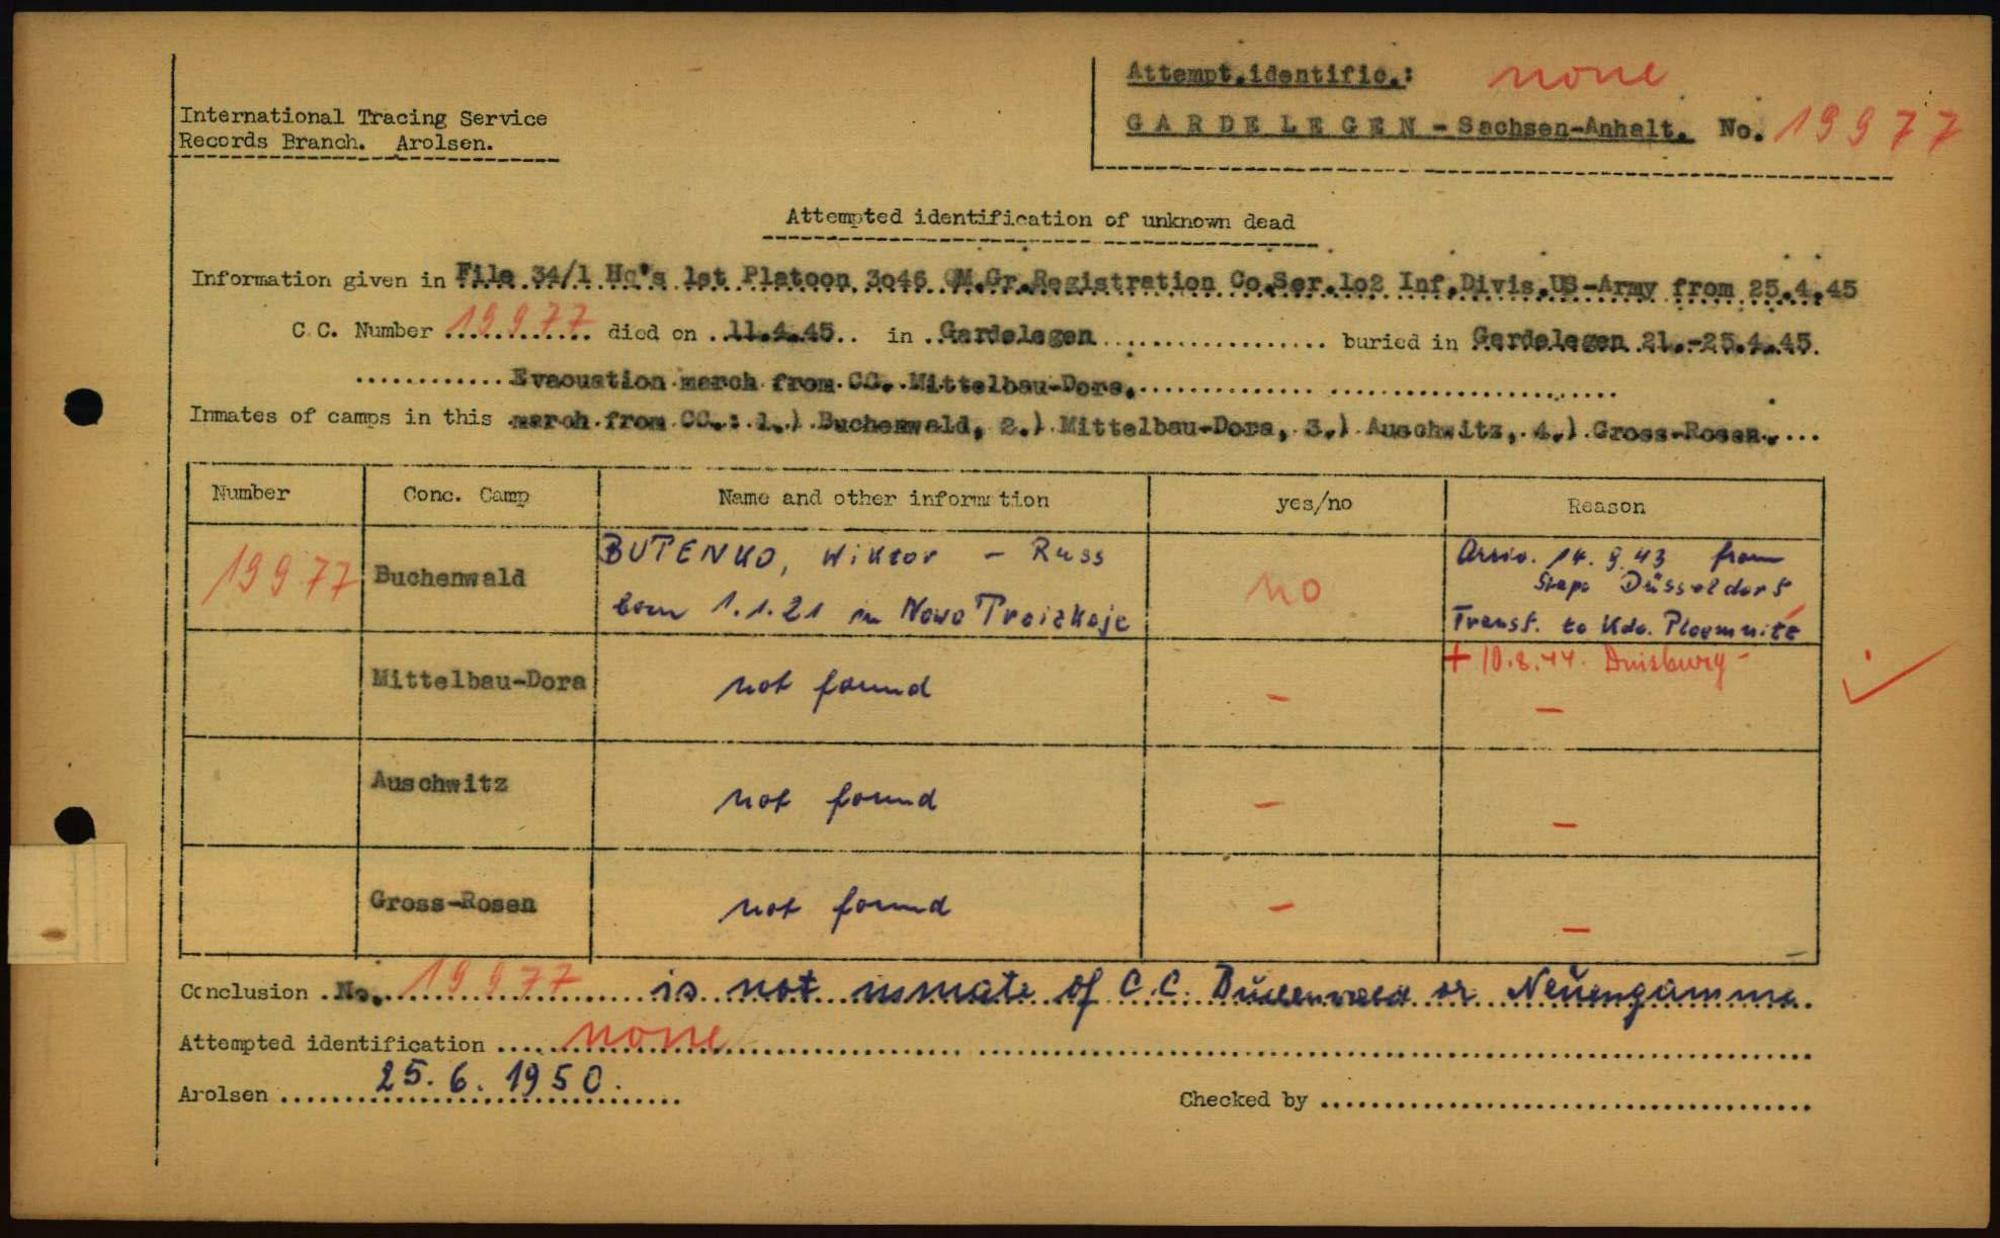 Attempt.identific.: none
International Tracing Service
Records Branch. Arolsen.
GARDELEGEN - Sachsen-Anhalt. No. 19977
Attempted identification of unknown dead
Information given in File 34/1 Hq's 1st Platoon 3o46 QM.Gr.Registration Co.Ser.1o2 Inf.Divis.US-Army from 25.4.45
C.C. Number 19977 died on 11.4.45 in Gardelegen buried in Gardelegen 21.-25.4.45.
Evacuation march from CC. Mittelbau-Dora.
Inmates of camps in this march from CC.: 1.) Buchenwald, 2.) Mittelbau-Dora, 3.) Auschwitz, 4.) Gross-Rosen.
Number Conc. Camp Name and other information yes/no Reason
19977 Buchenwald BUTENKO, Wiktor - Russ no Arriv. 14.9.43 from
Stapo Düsseldorf
born 1.1.21 in Nowo Troizkoje Transf. to Kdo.
+ 10.8.44. Duisburg -
Mittelbau-Dora not found - -
Auschwitz not found - -
Gross-Rosen not found - -
Conclusion No. 19977 is not inmate of C.C. Buchenwald or Neuengamme.
Attempted identification none
Arolsen 25.6.1950. Checked by